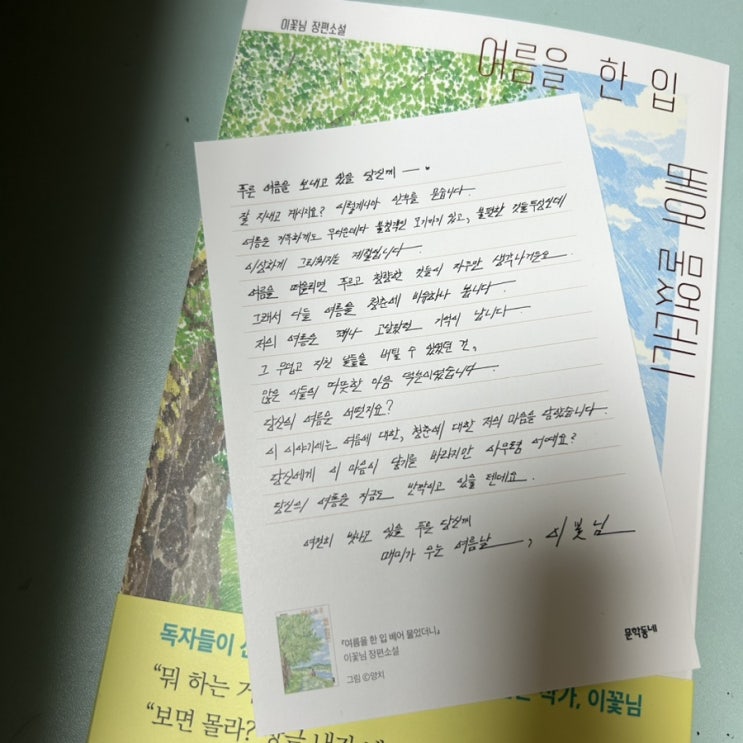 이꽃님 장편소설
여름을 한 입
베어 물었더니
푸른 여름을 보내고 있을 당신께
잘 지내고 계시지요? 이렇게나마 안부를 묻습니다.
여름은 지독하게도 무더운데다 불청객인 모기까지 있고, 불편한 것들 투성인데
이상하게 그리워지는 계절입니다.
여름을 떠올리면 푸르고 청량한 것들이 자꾸만 생각나거든요.
그래서 다들 여름을 청춘에 비유하나 봅니다.
저의 여름은 꽤나 고달팠던 기억이 납니다.
그 무덥고 지친 날들을 버틸 수 있었던 건,
많은 이들의 따뜻한 마음 덕분이었습니다.
당신의 여름은 어떤지요?
이 이야기에는 여름에 대한, 청춘에 대한 저의 마음을 담았습니다.
당신에게 이 마음이 닿기를 바라지만 아무렴 어때요?
당신의 여름은 지금도 반짝이고 있을 텐데요.
여전히 빛나고 있을 푸른 당신께
매미가 우는 여름날, 이꽃님
『여름을 한 입 베어 물었더니』
이꽃님 장편소설
그림 ©양치
문학동네
독자들이
작가, 이꽃님
“뭐 하는
“보면 몰라?